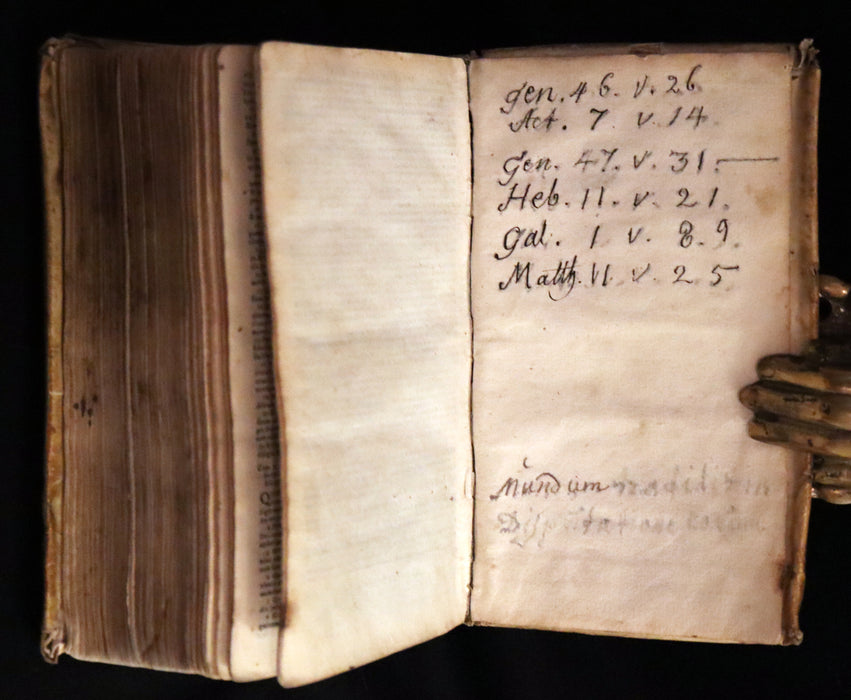 Gen. 46. v. 26
Act. 7 v. 14.
Gen. 47. v. 31.—
Heb. 11. v. 21.
Gal. 1 v. 8. 9.
Matth. 11. v. 25
Mundum tradidit in
Disputatione eorum